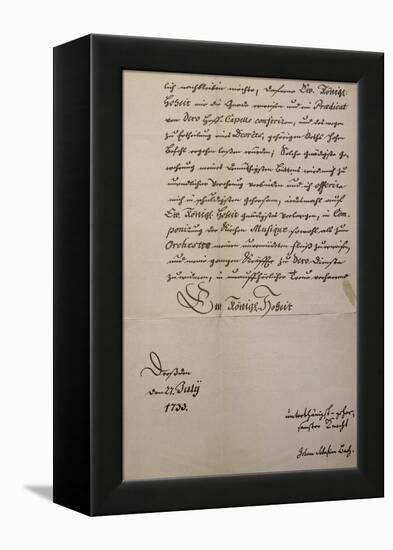 lich nachbleiben möchte, daferne Ew. Königl.
Hoheit mir die Gnade erweisen und ein Prædicat
von Dero Hoff-Capelle conferiren, und deswegen
zu Ertheilung eines Decrets, gehörigen Orths hohen
Befehl ergehen laßen würden; Solche gnädigste Ge-
wehrung meines demüthigsten Bittens wird mich zu
unendlicher Verehrung verbinden und ich offerire
mich in schuldigsten Gehorsam, iedesmahl auf
Ew. Königl. Hoheit gnädigstes Verlangen, in Com-
ponirung der Kirchen Musique sowohl als zum
Orchestre meinen unermüdeten Fleiß zu erweisen,
und meine gantzen Kräffte zu Dero Dienste
zu widmen, in unaufhörlicher Treue verharrend
Ew. Königl. Hoheit
Dreßden
den 27. July
1733.
unterthänigst-gehor-
samster Knecht
Johann Sebastian Bach.